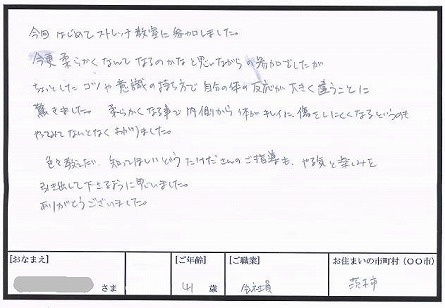 今回はじめてストレッチ教室に参加しました。
今更柔らかくなんてなるのかなと思いながらの参加でしたが
ちょっとしたコツや意識の持ち方で自分の体の反応が大きく違うことに
驚きました。柔らかくなる事で内側から体がキレイに、傷をしにくくなるというのも
やってみないとなくわかりました。
色々教えたい、知ってほしいというたけださんのご指導も、やる気と楽しみを
引き出して下さるように思いました。
ありがとうございました。
[おなまえ] さま
[ご年齢] 41 歳
[ご職業] 会社員
お住まいの市町村(〇〇市) 茨木市